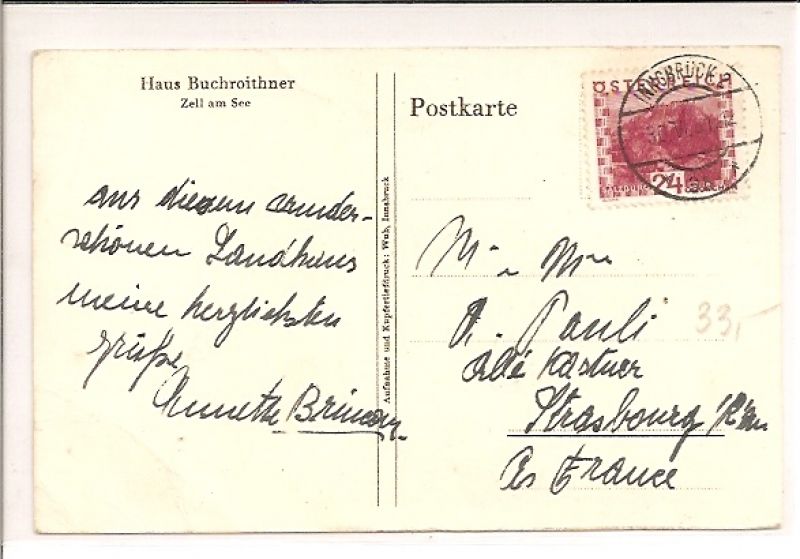 Haus Buchroithner
Zell am See
aus diesem wunder-
schönen Landhaus
meine herzlichsten
Grüße
Annette
Aufnahme und Kupfertiefdruck: Wub, Innsbruck
Postkarte
ÖSTERREICH
INNSBRUCK 2
24
Mr u Mme
Pauli
Allé Kastner
Strasbourg
France
33,-